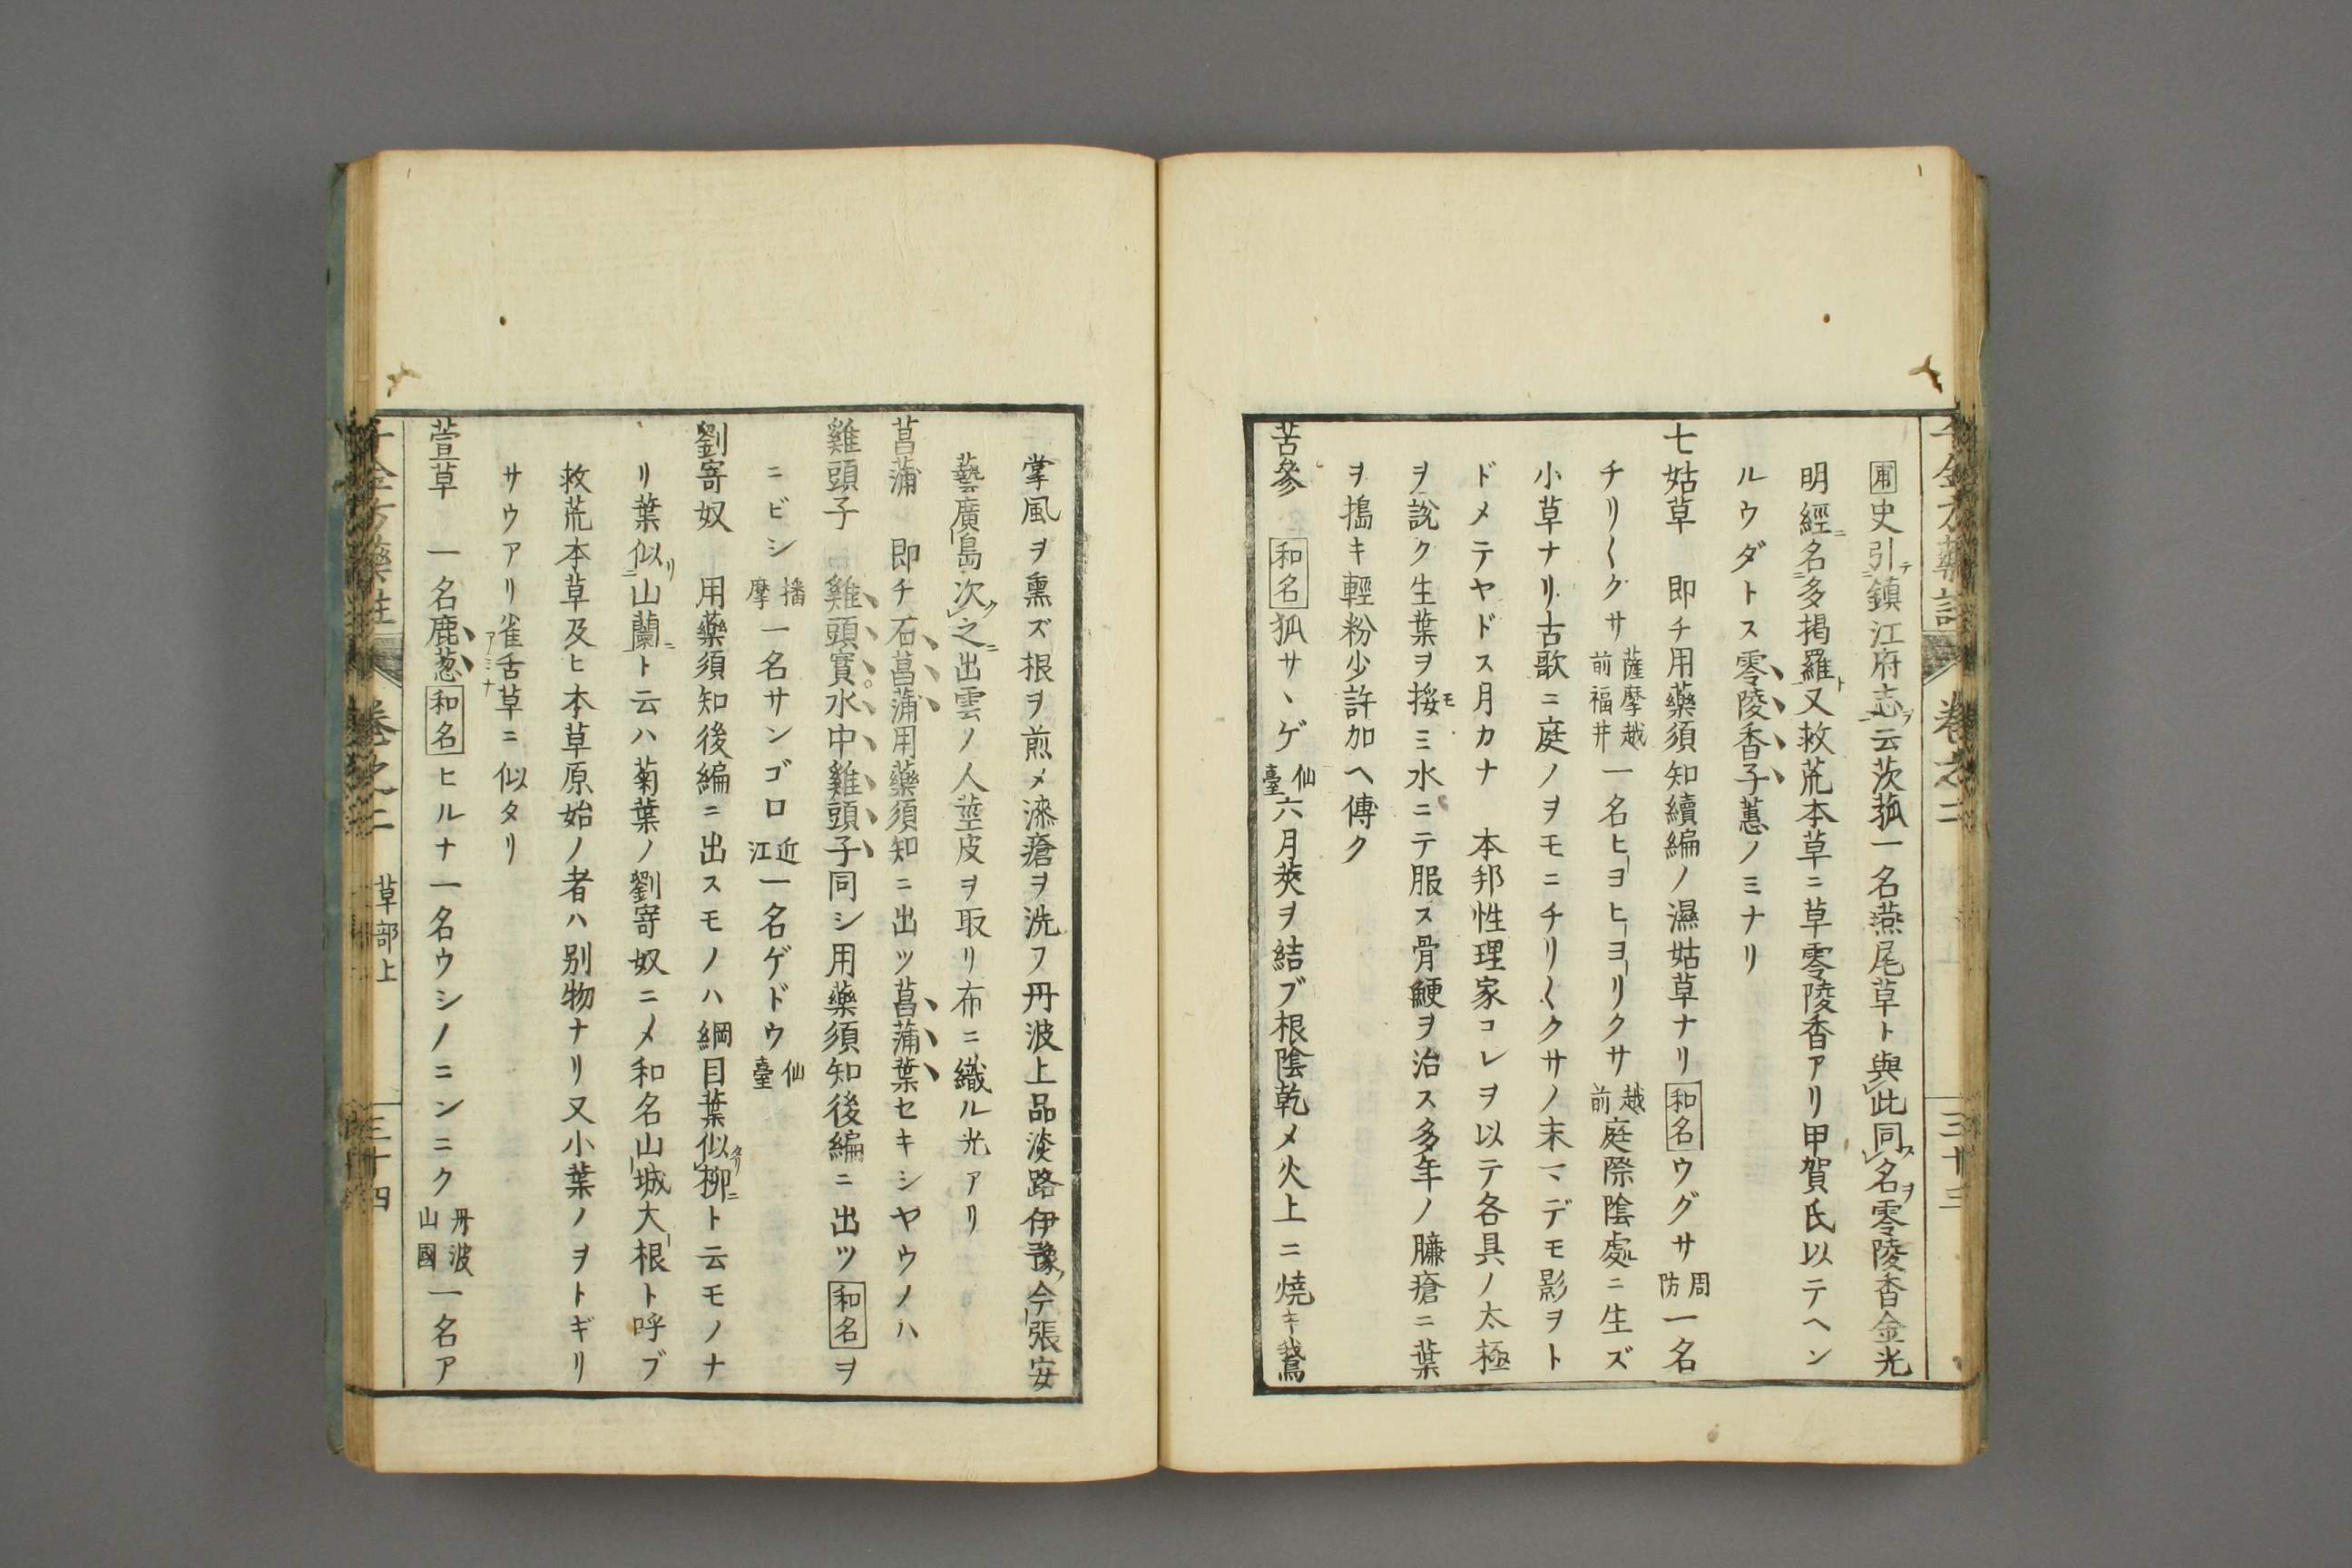 千金方藥註　卷之二　三十三
甫史引テ鎮江府志ヲ云茨菰一名燕尾草ト與此同ス名ヲ零陵香金光
明經ニ名多揭羅ト又救荒本草ニ草零陵香アリ甲賀氏以テヘン
ルウダトス零陵香子蕙ノミナリ
七姑草　即チ用藥須知續編ノ濕姑草ナリ和名ウグサ周防一名
チリ〱グサ薩摩越前福井一名ヒヨヒヨリクサ越前庭際陰處ニ生ズ
小草ナリ古歌ニ庭ノヲモニチリ〱クサノ末マデモ影ヲト
ドメテヤドス月カナ　本邦性理家コレヲ以テ各具ノ太極
ヲ說ク生葉ヲ挼モミ水ニテ服ス骨鯁ヲ治ス多年ノ臁瘡ニ葉
ヲ搗キ輕粉少許加ヘ傅ク
苦參　和名狐サヽゲ仙臺六月莢ヲ結ブ根陰乾メ火上ニ焼キ鵞
掌風ヲ熏ズ根ヲ煎メ漆瘡ヲ洗フ丹波上品淡路伊豫今張安
藝廣島次ク之ニ出雲ノ人莖皮ヲ取リ布ニ織ル光アリ
菖蒲　即チ石菖蒲用藥須知ニ出ツ菖蒲葉セキシヤウノハ
雞頭子　雞頭實。水中雞頭子同シ用藥須知後編ニ出ツ和名ヲ
ニビシ播摩一名サンゴロ近江一名ゲドウ仙臺
劉寄奴　用藥須知後編ニ出スモノハ綱目葉似タリ柳ニト云モノナ
リ葉似リ山蘭ニト云ハ菊葉ノ劉寄奴ニメ和名山城大根ト呼ブ
救荒本草及ヒ本草原始ノ者ハ別物ナリ又小葉ノヲトギリ
サウアリ雀舌草ニ似タリ
萱草　一名鹿葱アミナ和名ヒルナ一名ウシノニンニク丹波山國一名ア
千金方藥註　卷之二　草部上　三十四